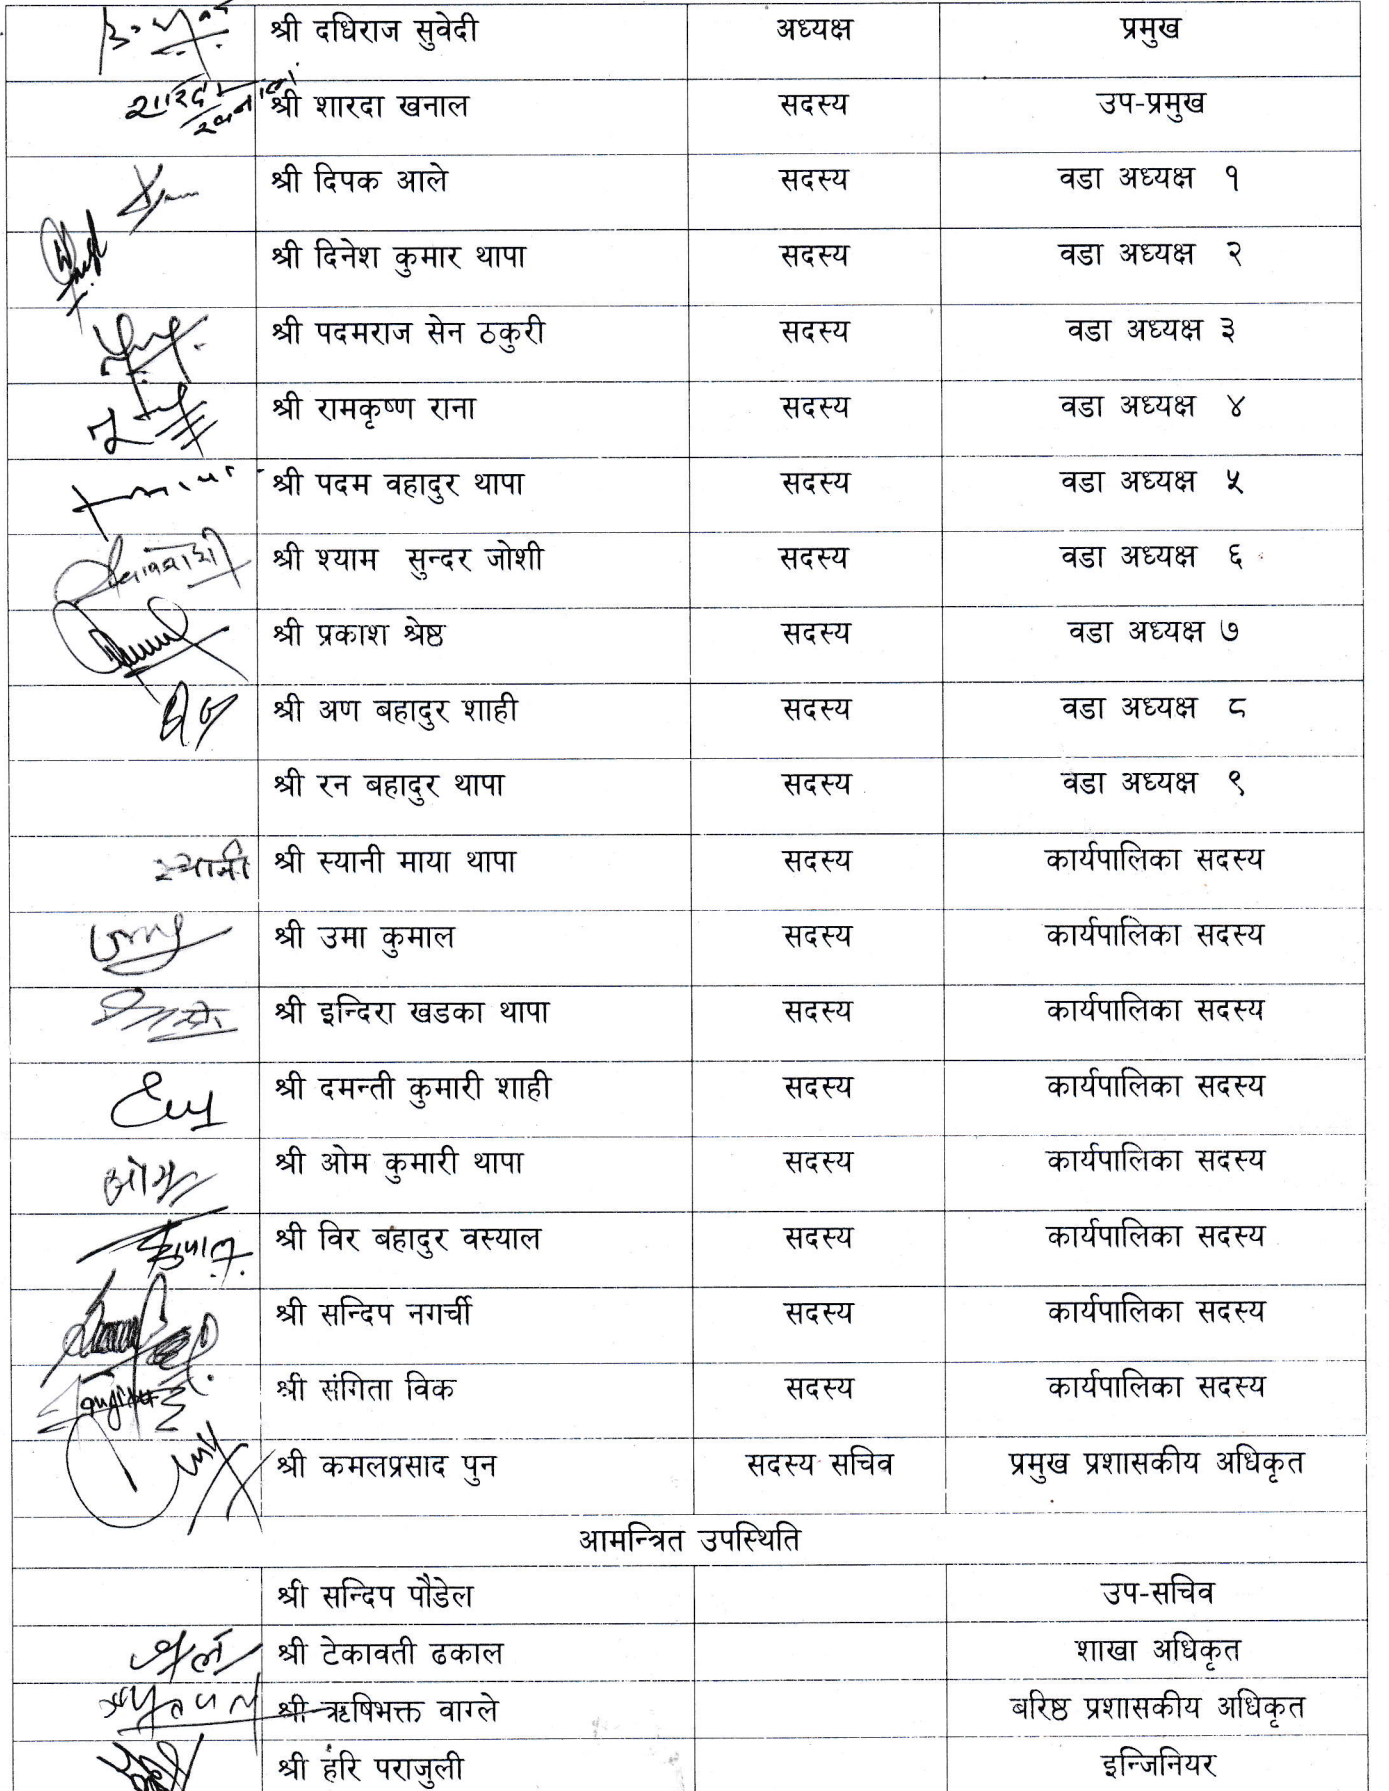 श्री दधिराज सुवेदी अध्यक्ष प्रमुख
शारदा खनाल श्री शारदा खनाल सदस्य उप-प्रमुख
श्री दिपक आले सदस्य वडा अध्यक्ष १
श्री दिनेश कुमार थापा सदस्य वडा अध्यक्ष २
श्री पदमराज सेन ठकुरी सदस्य वडा अध्यक्ष ३
श्री रामकृष्ण राना सदस्य वडा अध्यक्ष ४
श्री पदम वहादुर थापा सदस्य वडा अध्यक्ष ५
श्री श्याम सुन्दर जोशी सदस्य वडा अध्यक्ष ६
श्री प्रकाश श्रेष्ठ सदस्य वडा अध्यक्ष ७
श्री अण बहादुर शाही सदस्य वडा अध्यक्ष ८
श्री रन बहादुर थापा सदस्य वडा अध्यक्ष ९
स्यानी श्री स्यानी माया थापा सदस्य कार्यपालिका सदस्य
श्री उमा कुमाल सदस्य कार्यपालिका सदस्य
श्री इन्दिरा खडका थापा सदस्य कार्यपालिका सदस्य
श्री दमन्ती कुमारी शाही सदस्य कार्यपालिका सदस्य
श्री ओम कुमारी थापा सदस्य कार्यपालिका सदस्य
श्री विर बहादुर वस्याल सदस्य कार्यपालिका सदस्य
श्री सन्दिप नगर्ची सदस्य कार्यपालिका सदस्य
श्री संगिता विक सदस्य कार्यपालिका सदस्य
श्री कमलप्रसाद पुन सदस्य सचिव प्रमुख प्रशासकीय अधिकृत
आमन्त्रित उपस्थिति
श्री सन्दिप पौडेल उप-सचिव
श्री टेकावती ढकाल शाखा अधिकृत
श्री ऋषिभक्त वाग्ले बरिष्ठ प्रशासकीय अधिकृत
श्री हरि पराजुली इन्जिनियर